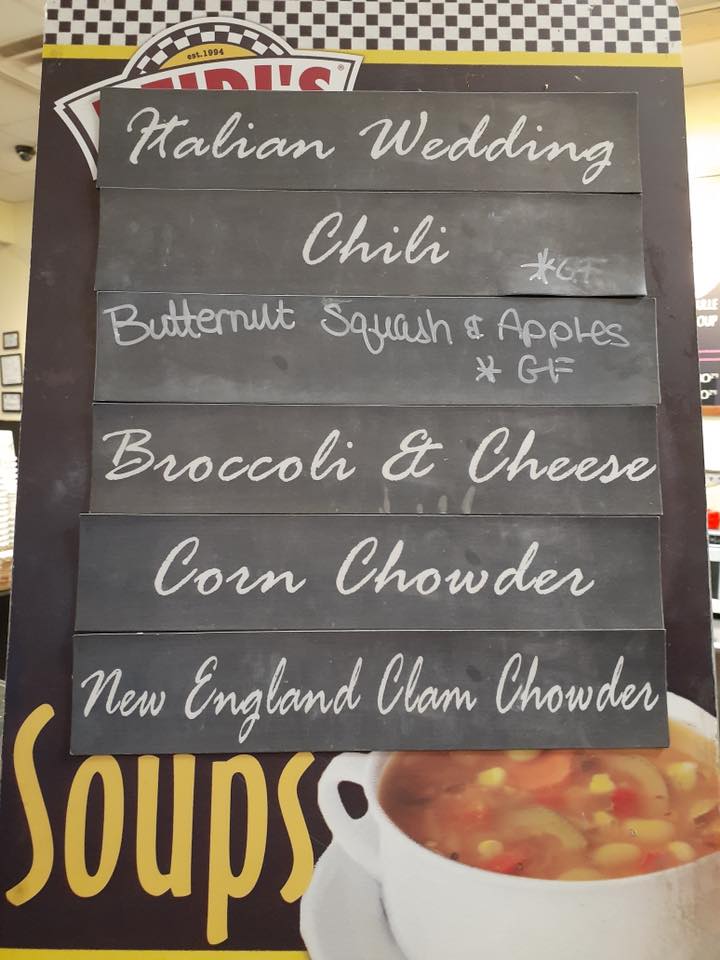 est.1994
Italian Wedding
Chili
*GF
Butternut Squash & Apples
* GF
Broccoli & Cheese
Corn Chowder
New England Clam Chowder
Soups